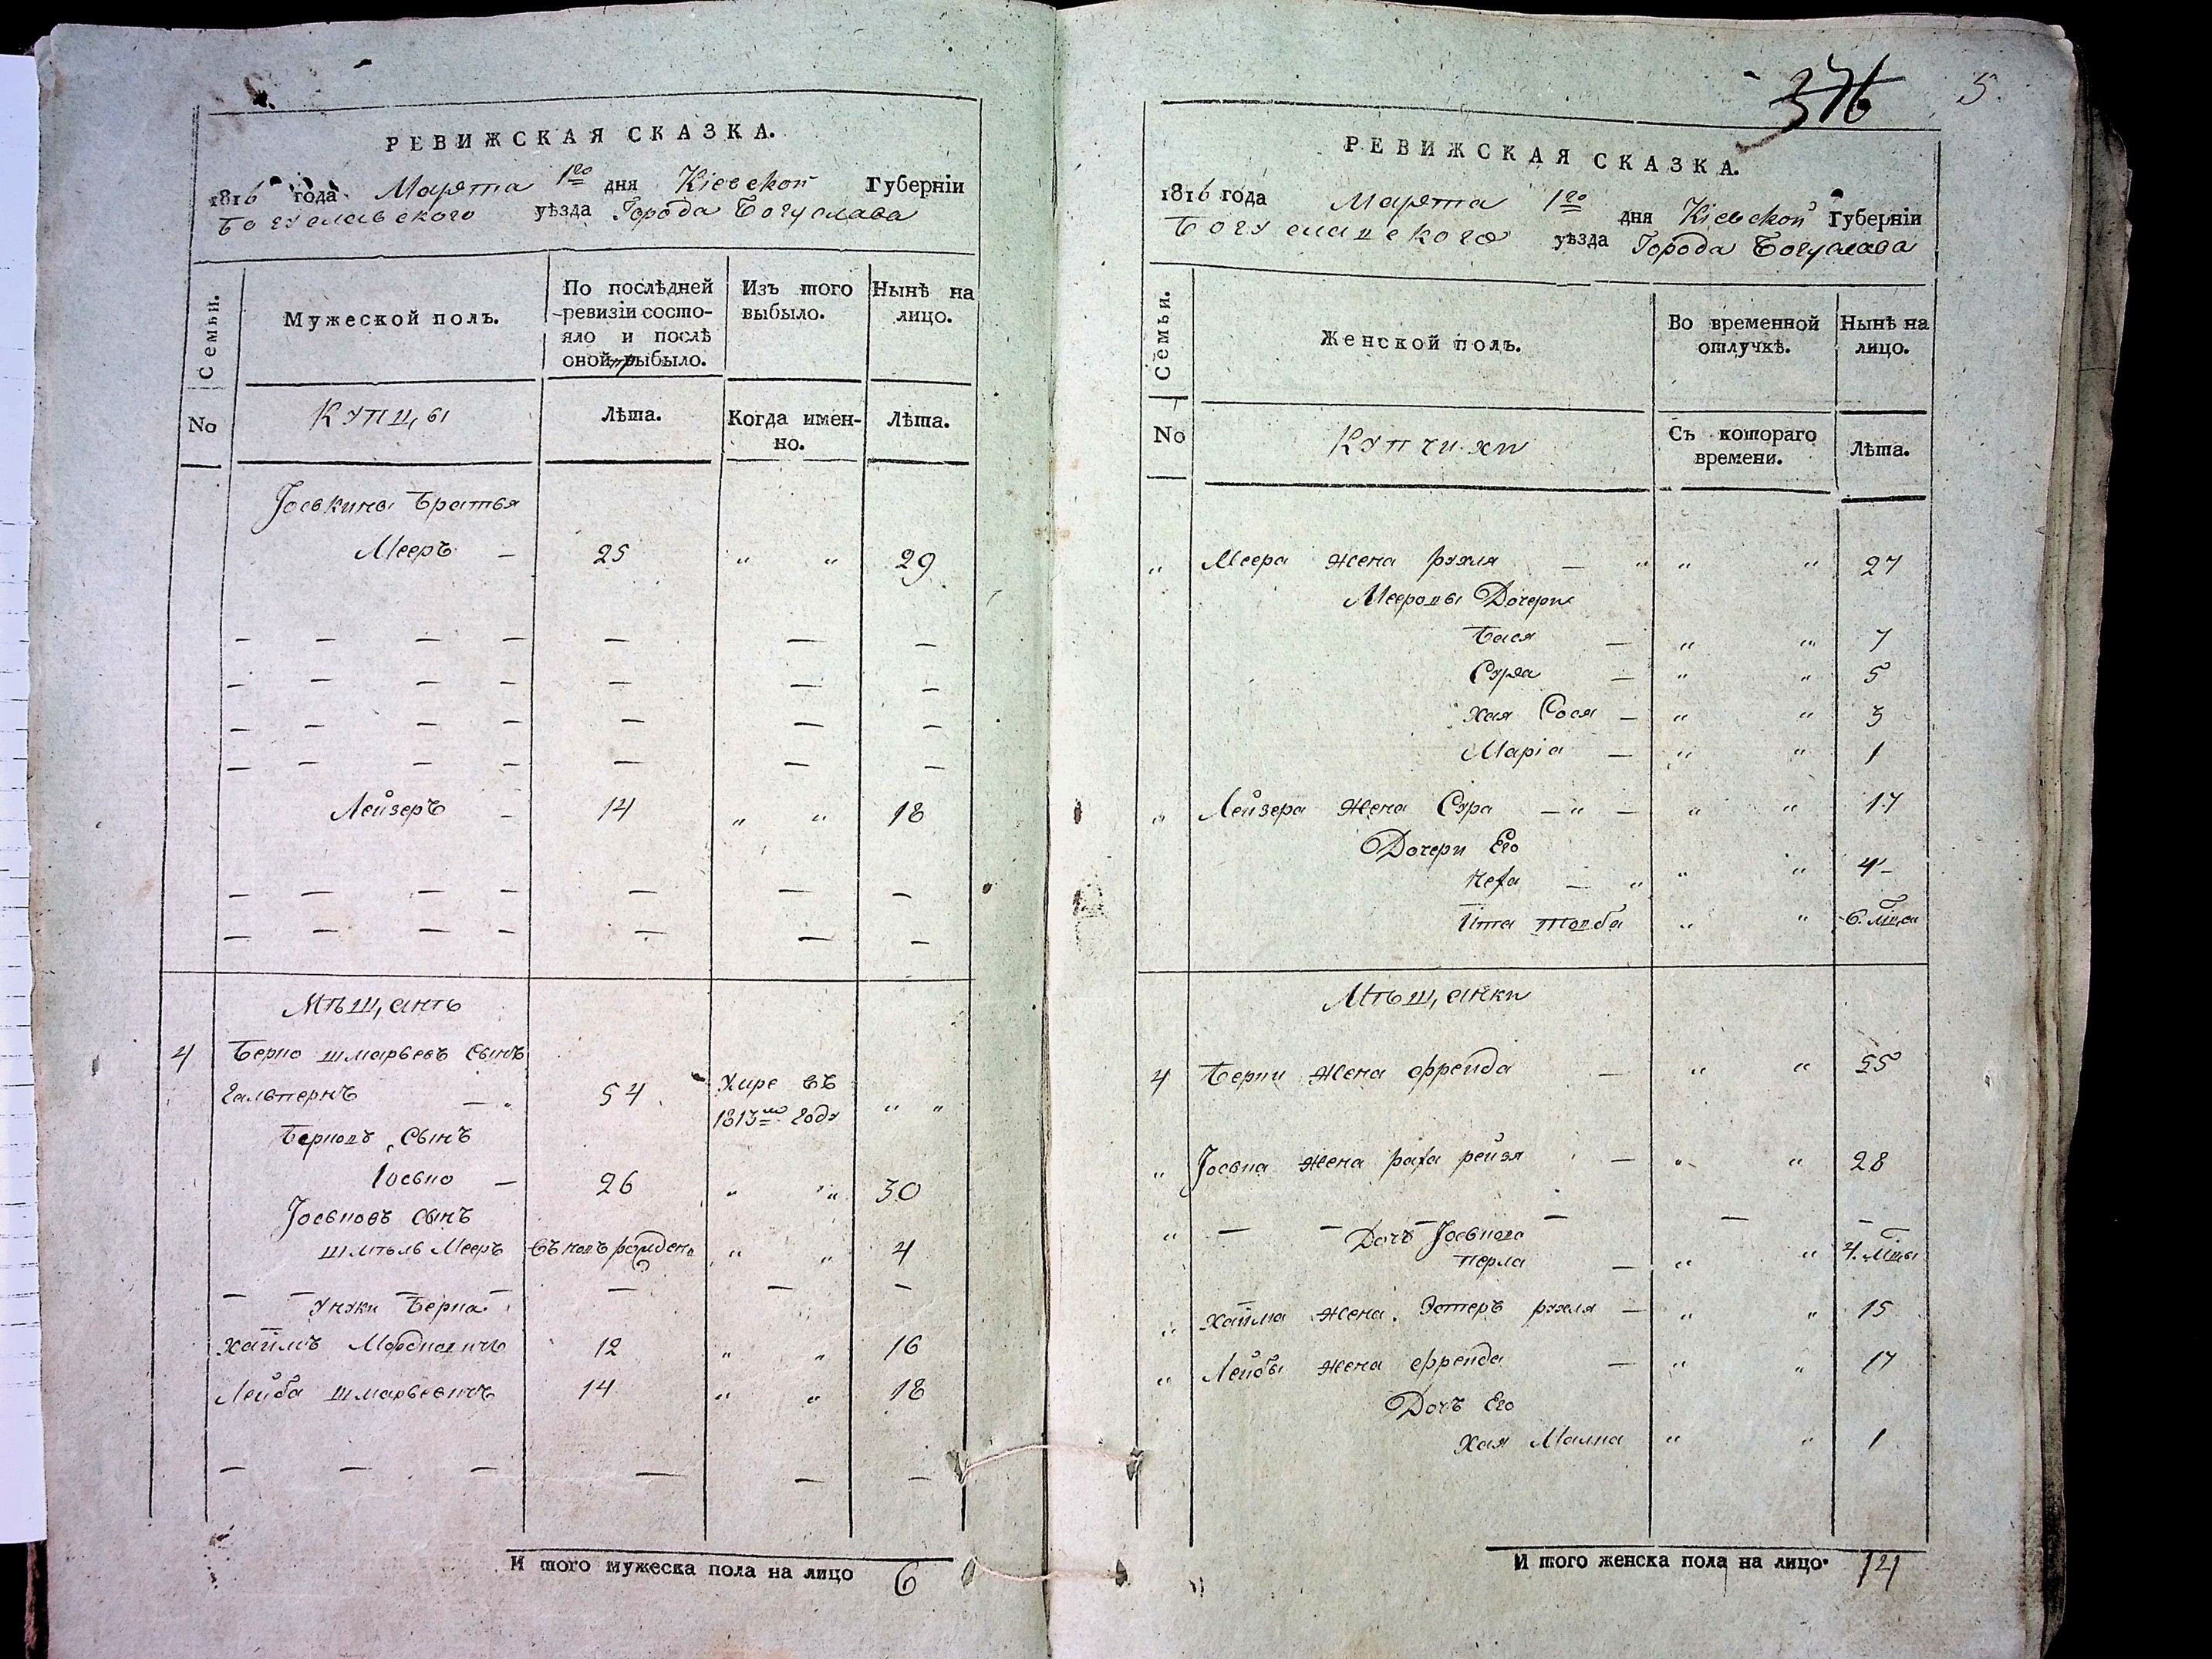 РЕВИЖСКАЯ СКАЗКА.
1816 года Марта 1го дня Кіевской Губерніи
Богуславского уѣзда Города Богуслава
Семьи.
Мужеской полъ.
По послѣдней ревизіи состо-
яло и послѣ
оной прибыло.
Изъ того
выбыло.
Нынѣ на
лицо.
No
Купцы
Лѣта.
Когда имен-
но.
Лѣта.
Іоськины Братья
Мееръ — 25 " " 29
— — — — — — —
— — — — — — —
— — — — — — —
— — — — — — —
Лейзеръ — 14 " " 18
— — — — — — —
— — — — — — —
Мѣщанѣ
4 Берко Шмарьевъ сынъ
Гальпернъ — 54 Умре въ
1813мъ Году " "
Берковъ Сынъ
Іосько — 26 " " 30
Іоськовъ сынъ
Шмѣль Мееръ въ новъ рожден. " " 4
— — — — — — —
Унуки Берка
Хаимъ Мордковичъ 12 " " 16
Лейба Шмарьевичъ 14 " " 18
— — — — — —
И того мужеска пола на лицо 6
376 5.
РЕВИЖСКАЯ СКАЗКА.
1816 года Марта 1го дня Кіевской Губерніи
Богуславского уѣзда Города Богуслава
Семьи.
Женской полъ.
Во временной
отлучкѣ.
Нынѣ на
лицо.
No
Купчихи
Съ котораго
времени.
Лѣта.
" Меера жена Рухля — " " " 27
Мееровы Дочери
Бася — " " 7
Сура — " " 5
Хая Сося — " " 3
Маріа — " " 1
" Лейзера жена Сура — " — " " 17
Дочери Его
— " " " 4
Ита Товба " " 6. мца
Мѣщанки
4 Берки жена Фрейда — " " 55
" Іоська жена Рейзя — " " 28
" — — — — —
Дочь Іоськова
Перла — " " 4. мцы
" Хаима жена Эстеръ Рухля — " " 15
" Лейбы жена Фрейда — " " 17
Дочь Его
Хая Малка " " 1
И того женска пола на лицо 14